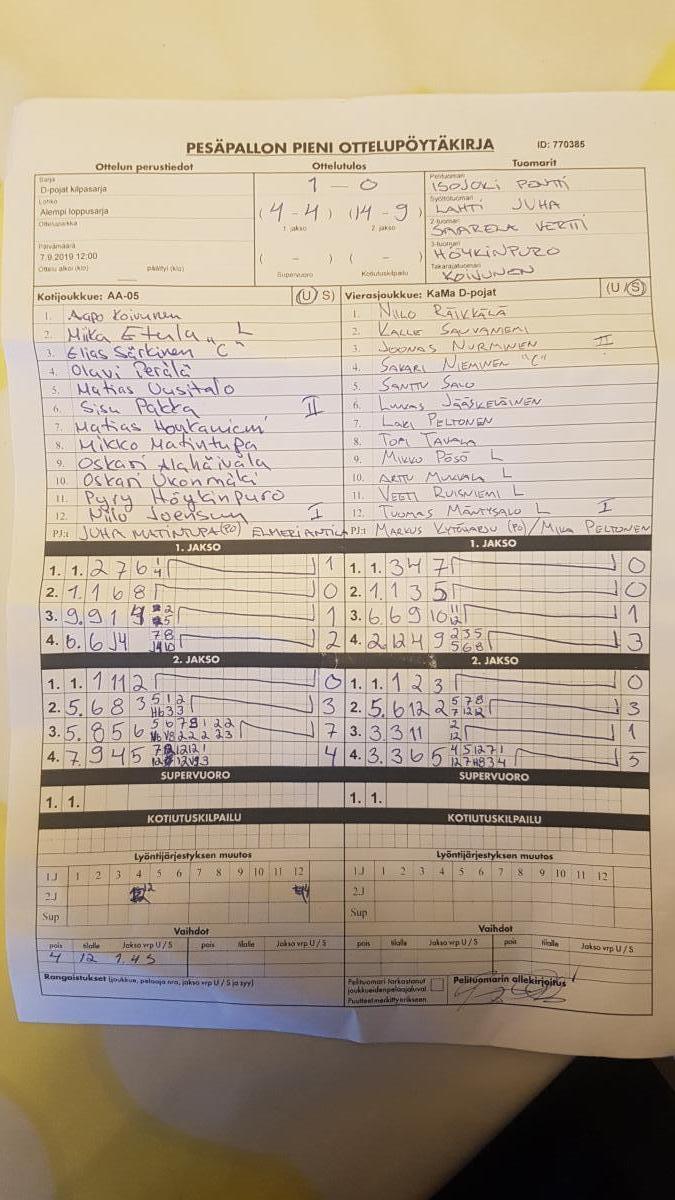 PESÄPALLON PIENI OTTELUPÖYTÄKIRJA
ID: 770385
Ottelun perustiedot
Sarja
D-pojat kilpasarja
Lohko
Alempi loppusarja
Ottelupaikka
Päivämäärä
7.9.2019 12:00
Ottelu alkoi (klo) päättyi (klo)
Ottelutulos
1 - 0
(4-4) (14-9)
1. jakso 2. jakso
( - ) ( - )
Supervuoro Kotiutuskilpailu
Tuomarit
Pelituomari
ISOJOKI PENTTI
Syöttötuomari
LAHTI JUHA
2-tuomari
SAARELA VERTTI
3-tuomari
HÖYKINPURO
Takarajatuomari
KOIVUNEN
Kotijoukkue: AA-05 (U S)
1. Aapo Koivunen
2. Miika Etula L
3. Elias Särkinen "C"
4. Olavi Perälä
5. Matias Uusitalo
6. Sisu Pakka II
7. Matias
8. Mikko Matintupa
9. Oskari Alahäivälä
10. Oskari Ukonmäki
11. Pyry Höykinpuro
12. Niilo Joensuu I
PJ:t JUHA MATINTUPA (PO) ELMERI ANTILA
Vierasjoukkue: KaMa D-pojat (U S)
1. NIILO RÄIKKÄLÄ
2. KALLE SAUVANIEMI
3. JOONAS NURMINEN II
4. SAKARI NIEMINEN "C"
5. SANTTU SALO
6. LUUKAS JÄÄSKELÄINEN
7. LAKI PELTONEN
8. TOMI TAVALA
9. MIKKO PÖSÖ L
10. ARTTU MUKKALA L
11. VEETI RUISNIEMI L
12. TUOMAS MÄNTYSALO L I
PJ:t MARKUS KYTÖHARJU (PO) / MIKA PELTONEN
1. JAKSO
1. 1. 2 7 6 1 4 1
2. 1. 1 6 8 0
3. 9. 9 1 4 1
4. 6. 6 J4 7 8 2
1. JAKSO
1. 1. 3 4 7 0
2. 1. 1 3 5 0
3. 6. 6 9 10 11 12 1
4. 2. 12 4 9 2 3 5 5 6 8 3
2. JAKSO
1. 1. 1 11 2 0
2. 5. 6 8 3 3
3. 5. 8 5 6 7
4. 7. 9 4 5 4
2. JAKSO
1. 1. 1 2 3 0
2. 5. 6 12 2 5 7 8 7 12 12 3
3. 3 3 11 2 12 1
4. 3. 3 6 5 5
SUPERVUORO
1. 1.
SUPERVUORO
1. 1.
KOTIUTUSKILPAILU
KOTIUTUSKILPAILU
Lyöntijärjestyksen muutos
1.J 1 2 3 4 5 6 7 8 9 10 11 12
2.J 12 4
Sup
Lyöntijärjestyksen muutos
1.J 1 2 3 4 5 6 7 8 9 10 11 12
2.J
Sup
Vaihdot
pois tilalle Jakso vrp U / S pois tilalle Jakso vrp U / S
4 12 1. 4 S
Vaihdot
pois tilalle Jakso vrp U / S pois tilalle Jakso vrp U / S
Rangaistukset (joukkue, pelaaja nro, jakso vrp U / S ja syy)
Pelituomari tarkastanut
joukkueiden pelaajaluvat
Puutteet merkitty erikseen
Pelituomarin allekirjoitus